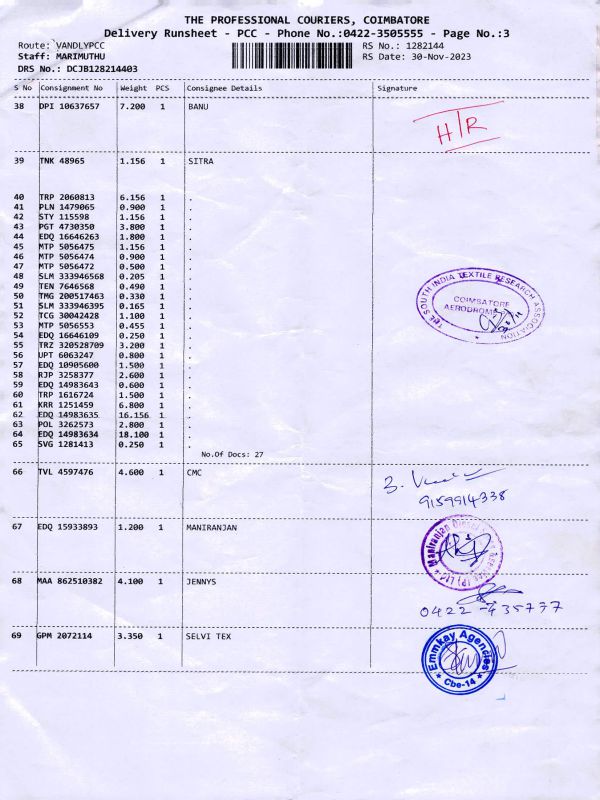 THE PROFESSIONAL COURIERS, COIMBATORE
Delivery Runsheet - PCC - Phone No.:0422-3505555 - Page No.:3
Route: VANDLYPCC RS No.: 1282144
Staff: MARIMUTHU RS Date: 30-Nov-2023
DRS No.: DCJB128214403
S No Consignment No Weight PCS Consignee Details Signature
38 DPI 10637657 7.200 1 BANU
H/R
39 TNK 48965 1.156 1 SITRA
40 TRP 2060813 6.156 1 .
41 PLN 1479065 0.900 1 .
42 STY 115598 1.156 1 .
43 PGT 4730350 3.800 1 .
44 EDQ 16646263 1.800 1 .
45 MTP 5056475 1.156 1 .
46 MTP 5056474 0.900 1 .
47 MTP 5056472 0.500 1 .
48 SLM 333946568 0.205 1 .
49 TEN 7646568 0.490 1 .
50 TMG 200517463 0.330 1 .
51 SLM 333946395 0.165 1 .
52 TCG 30042428 1.100 1 .
53 MTP 5056553 0.455 1 .
54 EDQ 16646109 0.250 1 .
55 TRZ 320528709 3.200 1 .
56 UPT 6063247 0.800 1 .
57 EDQ 10905600 1.500 1 .
58 RJP 3258377 2.600 1 .
59 EDQ 14983643 0.600 1 .
60 TRP 1616724 1.500 1 .
61 KRR 1251459 6.800 1 .
62 EDQ 14983635 16.156 1 .
63 POL 3262573 2.800 1 .
64 EDQ 14983634 18.100 1 .
65 SVG 1281413 0.250 1 .
THE SOUTH INDIA TEXTILE RESEARCH ASSOCIATION
COIMBATORE
AERODROME
No.Of Docs: 27
66 TVL 4597476 4.600 1 CMC
9159914338
67 EDQ 15933893 1.200 1 MANIRANJAN
Maniranjan Diesel
68 MAA 862510382 4.100 1 JENNYS
0422-435777
69 GPM 2072114 3.350 1 SELVI TEX
Emmkay Agencies
Cbe-14